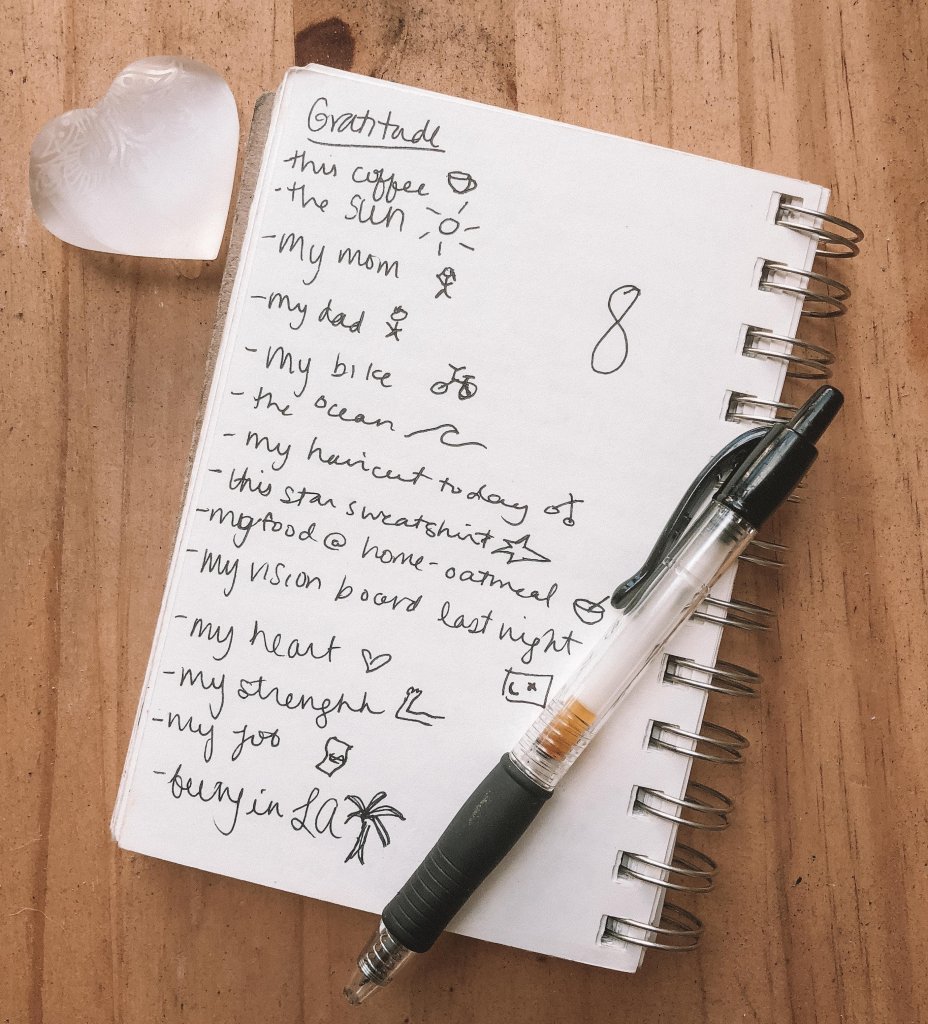 Gratitude
-this coffee
-the sun
-my mom
-my dad
8
-my bike
-the ocean
-my haircut today
-this star sweatshirt
-my food @ home-oatmeal
-my vision board last night
-my heart
-my strenghh
-my job
-being in LA